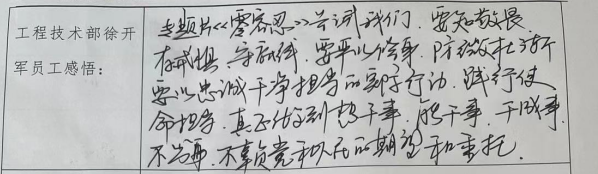 工程技术部徐开
军员工感悟：
专题片《零容忍》告诉我们，要知敬畏
存戒惧，守底线，要平心修身，防微杜渐
要以忠诚干净担当的实际行动，践行使
命担当，真正做到想干事，能干事，干成事
不出事，不辜负党和人民的期望和重托。